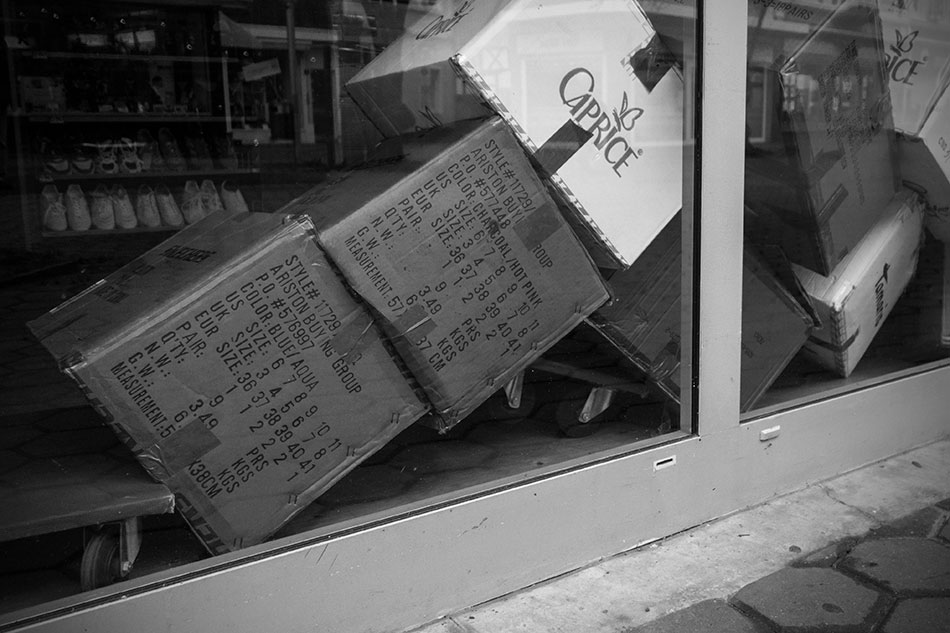 CAPRICE
STYLE# 11729
ARISTON BUY GROUP
P.O. #577448
COLOR: CHARCOAL/HOT PINK
US SIZE: 6 7 8 9 10 11
UK SIZE: 3 4 5 6 7 8
EUR SIZE: 36 37 38 39 40 41
QTY: 1 1 2 2 2 1
PAIR: 9
N.W.: 3.49 KGS
G.W.: 6 KGS
MEASUREMENT: 57 37 CM
STYLE# 11729
ARISTON BUYING GROUP
P.O. #576997
COLOR: BLUE/AQUA
US SIZE: 6 7 8 9 10 11
UK SIZE: 3 4 5 6 7 8
EUR SIZE: 36 37 38 39 40 41
QTY: 1 1 2 2 2 1
PAIR: 9 PRS
N.W.: 3.49 KGS
G.W.: 6 KGS
MEASUREMENT: 5 X38CM
RICE
Tamaris